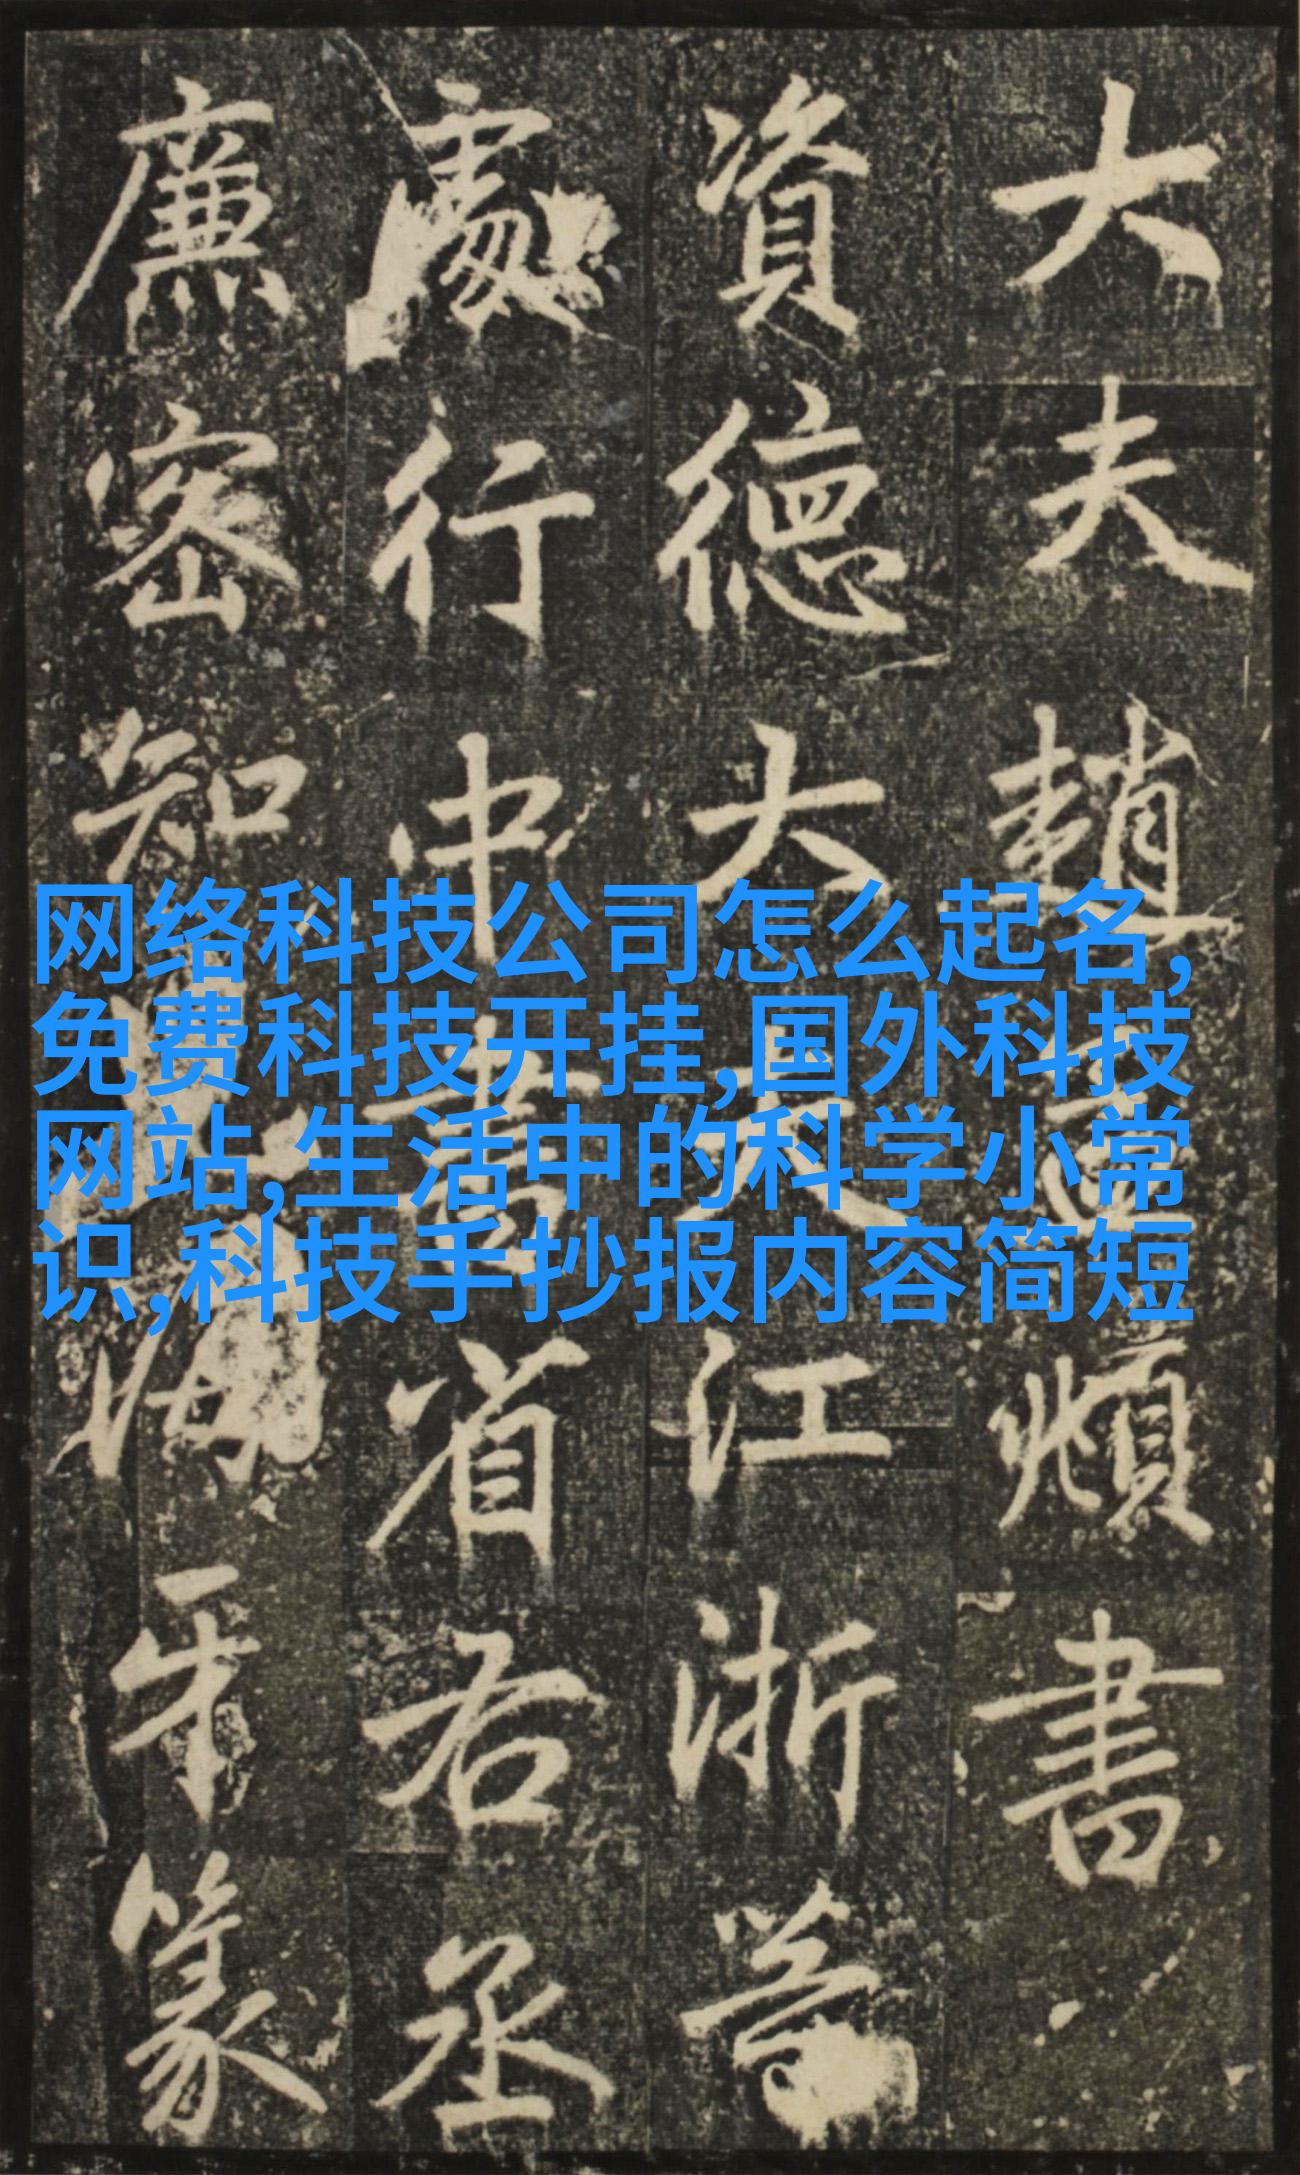 大夫趙孟頫書
資德大夫江浙等
處行中書省右丞
廉密知海牙篆
网络科技公司怎么起名,
免费科技开挂,国外科技
网站,生活中的科学小常
识,科技手抄报内容简短